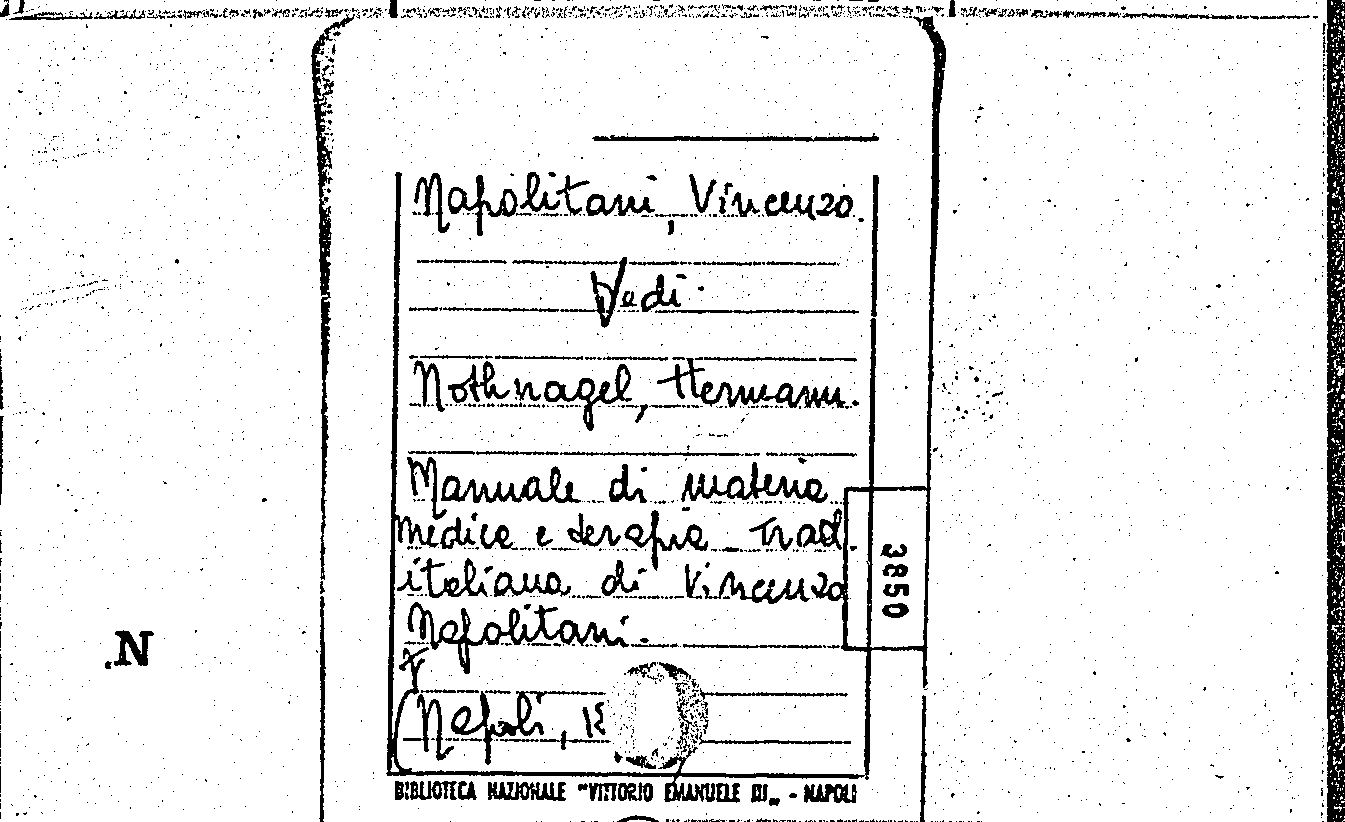 Napolitani, Vincenzo.
Vedi
Nothnagel, Hermann.
Manuale di materia
medica e terapia Trad.
italiana di Vincenzo
Napolitani.
3850
N.
Napoli,
BIBLIOTECA NAZIONALE "VITTORIO EMANUELE III„ - NAPOLI